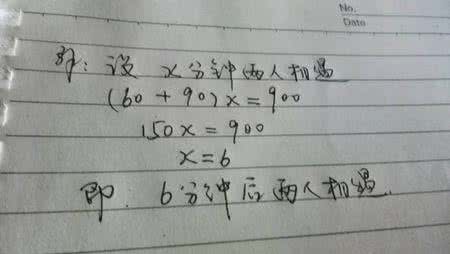 No.
Date
解：设 x分钟两人相遇
(60 + 90)x = 900
150x = 900
x = 6
即. 6分钟后两人相遇.